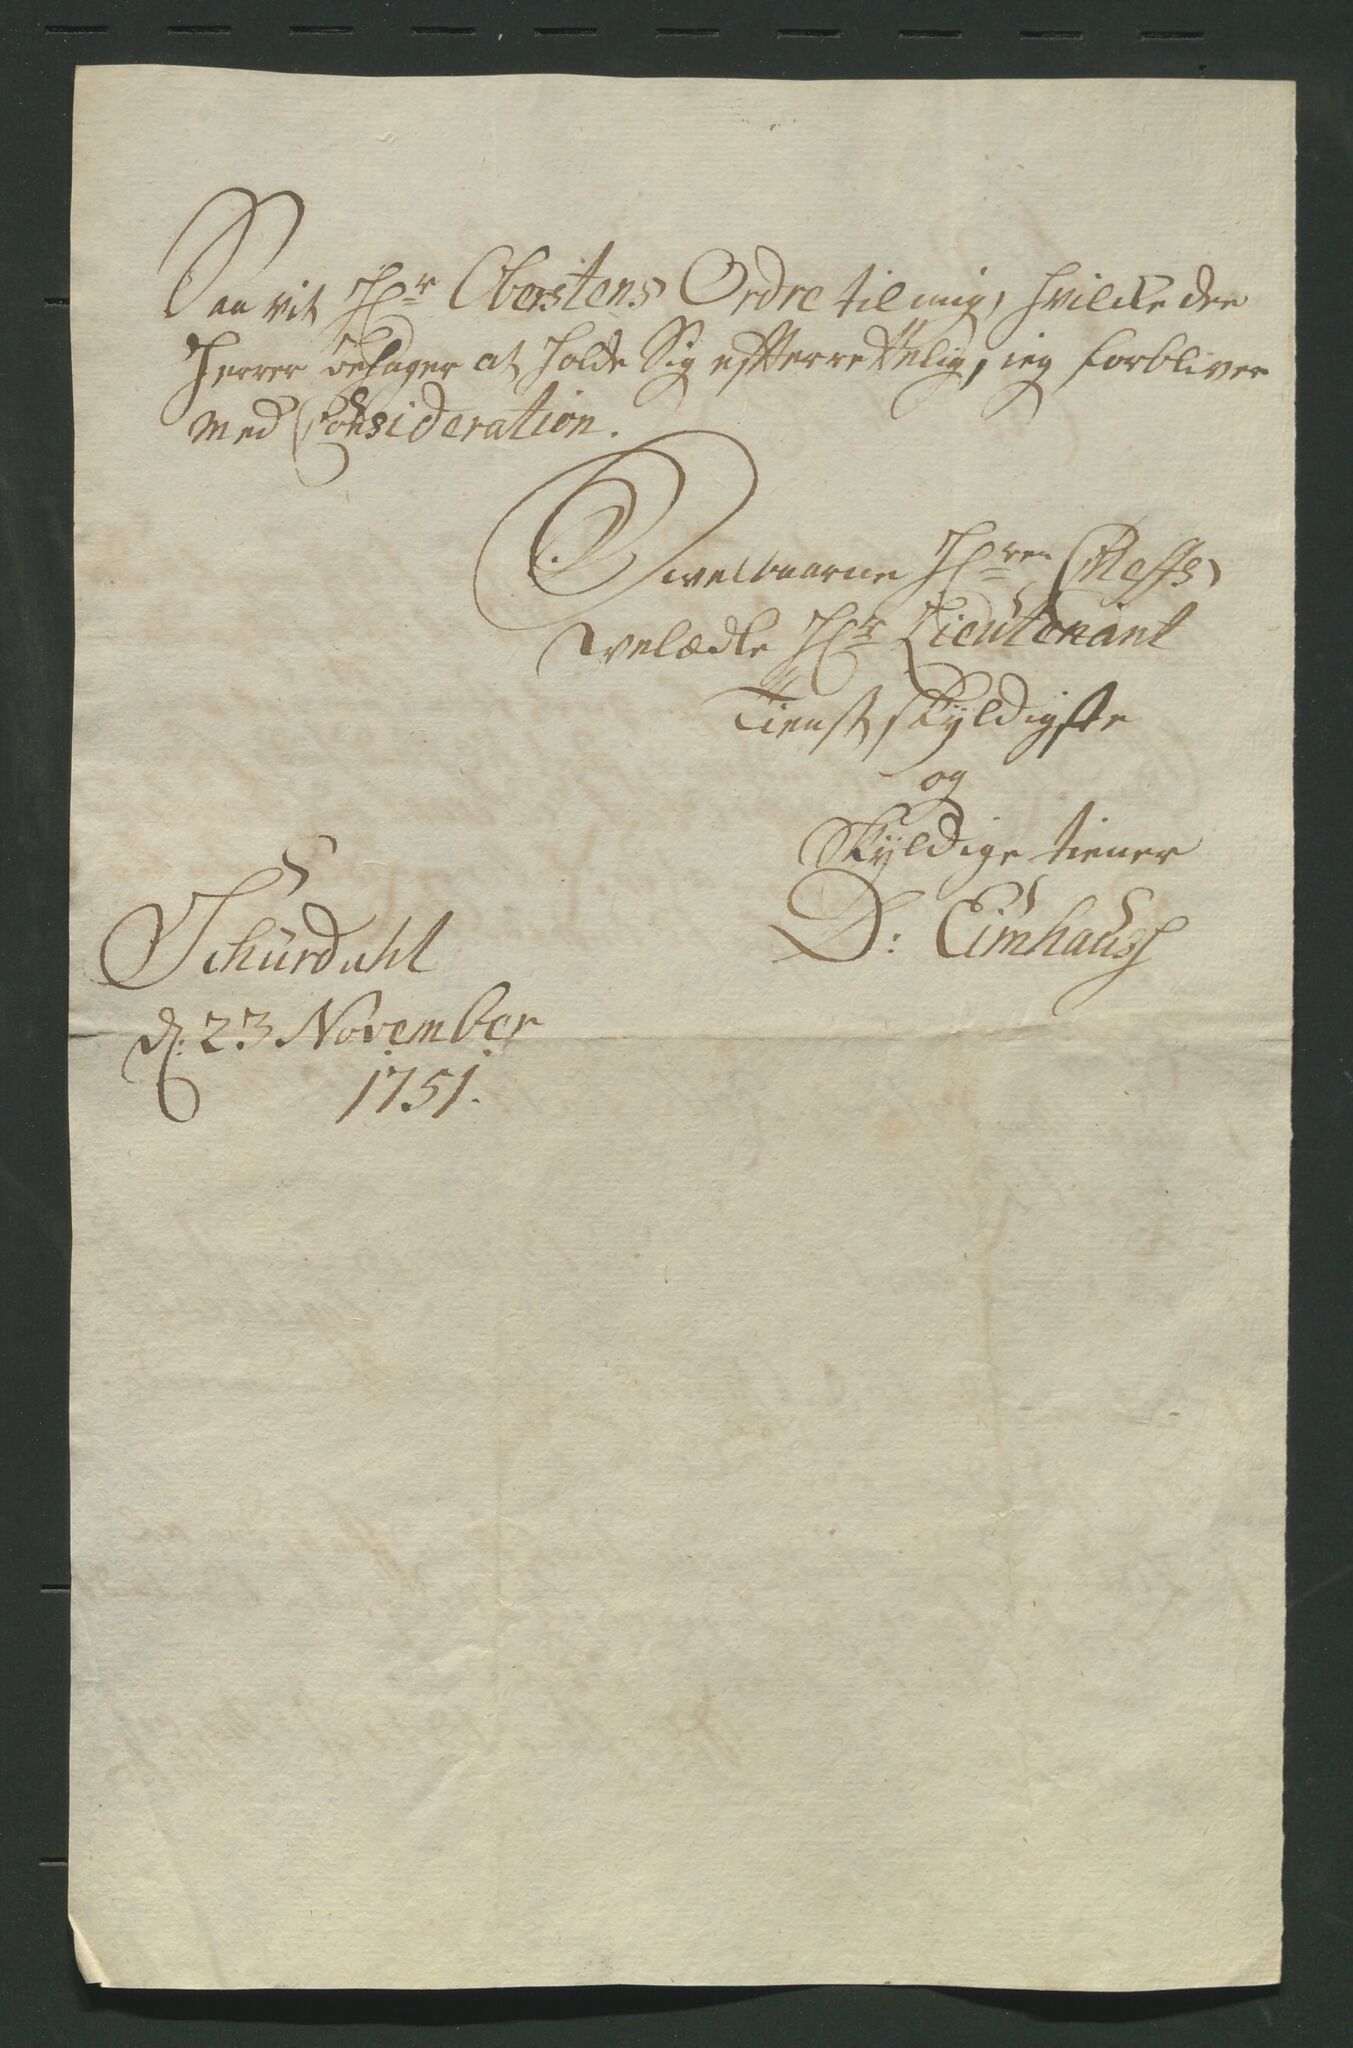 Saa vit Hr Oberstens Ordre til mig, hvilcke dee
Herrer behager at holde Sig efterrettelig, ieg forbliver
med Consideration.
Velbaarne Hren Cheffs
velædle Hr Lieutenant
Tienstskyldigste
og
Skyldige tiener
D: Eimhausß
Schürdahl
d. 23 November
1751.